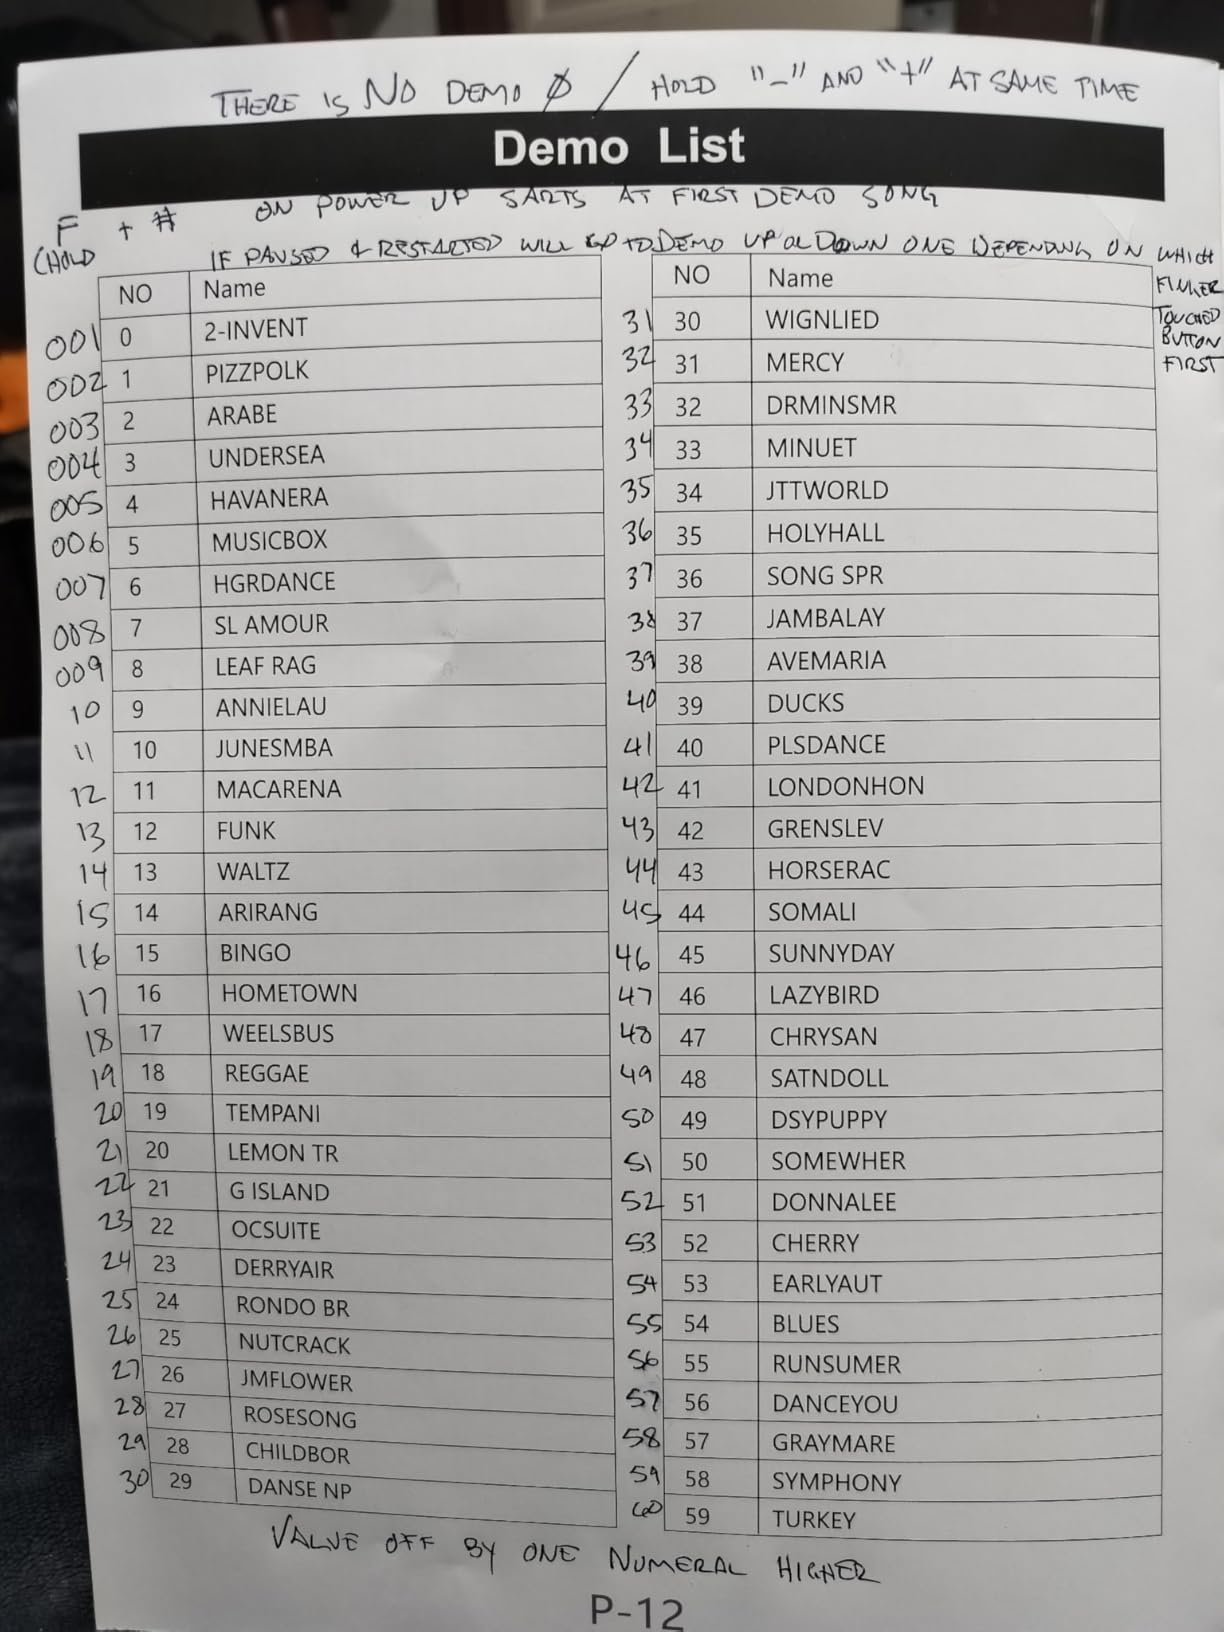 THERE IS NO DEMO Ø / HOLD "-" AND "+" AT SAME TIME
Demo List
ON POWER UP SARTS AT FIRST DEMO SONG
F + #
(HOLD
IF PAUSED & RESTARTED WILL GO TO DEMO UP OR DOWN ONE DEPENDING ON WHICH
FINGER
TOUCHED
BUTTON
FIRST
NO Name
001 0 2-INVENT
002 1 PIZZPOLK
003 2 ARABE
004 3 UNDERSEA
005 4 HAVANERA
006 5 MUSICBOX
007 6 HGRDANCE
008 7 SL AMOUR
009 8 LEAF RAG
10 9 ANNIELAU
11 10 JUNESMBA
12 11 MACARENA
13 12 FUNK
14 13 WALTZ
15 14 ARIRANG
16 15 BINGO
17 16 HOMETOWN
18 17 WEELSBUS
19 18 REGGAE
20 19 TEMPANI
21 20 LEMON TR
22 21 G ISLAND
23 22 OCSUITE
24 23 DERRYAIR
25 24 RONDO BR
26 25 NUTCRACK
27 26 JMFLOWER
28 27 ROSESONG
29 28 CHILDBOR
30 29 DANSE NP
NO Name
31 30 WIGNLIED
32 31 MERCY
33 32 DRMINSMR
34 33 MINUET
35 34 JTTWORLD
36 35 HOLYHALL
37 36 SONG SPR
38 37 JAMBALAY
39 38 AVEMARIA
40 39 DUCKS
41 40 PLSDANCE
42 41 LONDONHON
43 42 GRENSLEV
44 43 HORSERAC
45 44 SOMALI
46 45 SUNNYDAY
47 46 LAZYBIRD
48 47 CHRYSAN
49 48 SATNDOLL
50 49 DSYPUPPY
51 50 SOMEWHER
52 51 DONNALEE
53 52 CHERRY
54 53 EARLYAUT
55 54 BLUES
56 55 RUNSUMER
57 56 DANCEYOU
58 57 GRAYMARE
59 58 SYMPHONY
60 59 TURKEY
VALUE OFF BY ONE NUMERAL HIGHER
P-12